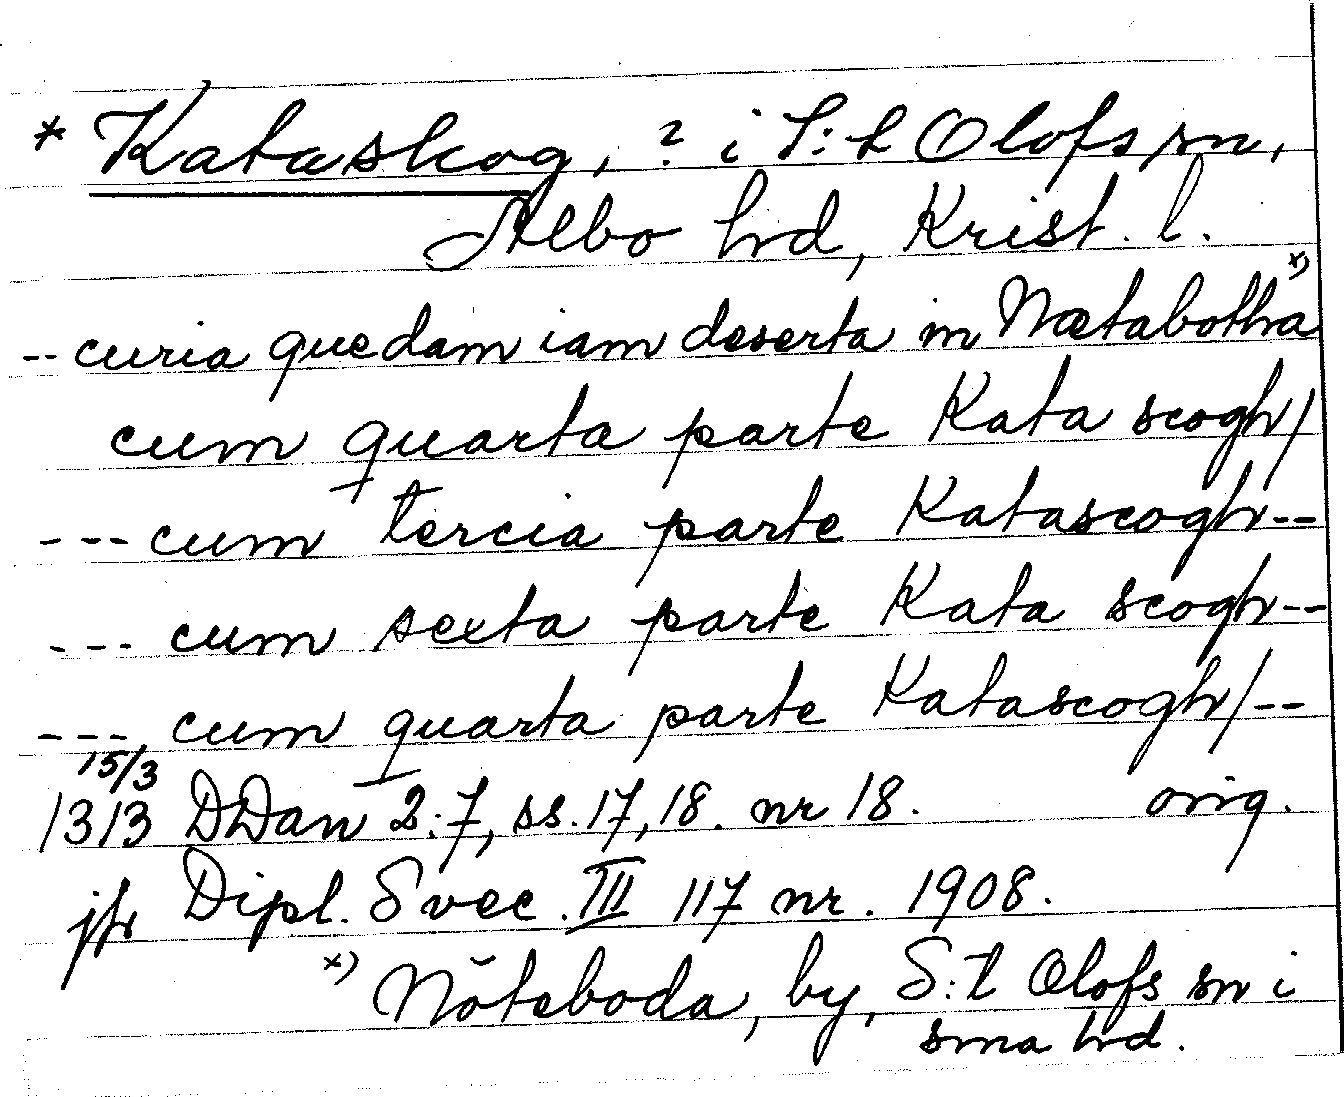 * Kataskog, ? i S:t Olofs sn,
Albo hd, Krist. l.
-- curia quedam iam deserta in Nætabotha x)
cum quarta parte Kata scogh/
--- cum tercia parte Katascogh--
--- cum sexta parte Kata scogh--
--- cum quarta parte Katascogh/--
15/3
1313 DDan 2:7, ss. 17, 18. nr 18. orig.
jfr Dipl. Svec. III 117 nr. 1908.
x) Nöteboda, by, S:t Olofs sn i
sma hd.